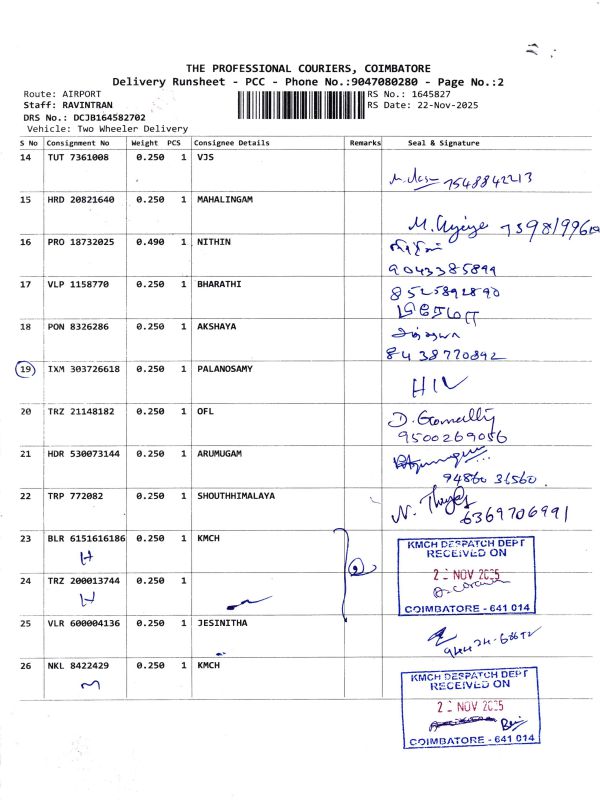 THE PROFESSIONAL COURIERS, COIMBATORE
Delivery Runsheet - PCC - Phone No.:9047080280 - Page No.:2
Route: AIRPORT
RS No.: 1645827
Staff: RAVINTRAN
RS Date: 22-Nov-2025
DRS No.: DCJB164582702
Vehicle: Two Wheeler Delivery
S No Consignment No Weight PCS Consignee Details Remarks Seal & Signature
14 TUT 7361008 0.250 1 VJS
7548842213
15 HRD 20821640 0.250 1 MAHALINGAM
16 PRO 18732025 0.490 1 NITHIN
9043385899
17 VLP 1158770 0.250 1 BHARATHI
8525892890
18 PON 8326286 0.250 1 AKSHAYA
8438770892
19 IXM 303726618 0.250 1 PALANOSAMY
20 TRZ 21148182 0.250 1 OFL
9500269056
21 HDR 530073144 0.250 1 ARUMUGAM
94860 31560
22 TRP 772082 0.250 1 SHOUTHHIMALAYA
6369706991
23 BLR 6151616186 0.250 1 KMCH
H
KMCH DESPATCH DEPT
RECEIVED ON
24 TRZ 200013744 0.250 1
H
NOV 2025
COIMBATORE - 641 014
25 VLR 600004136 0.250 1 JESINITHA
26 NKL 8422429 0.250 1 KMCH
KMCH DESPATCH DEPT
RECEIVED ON
NOV 2025
COIMBATORE - 641 014